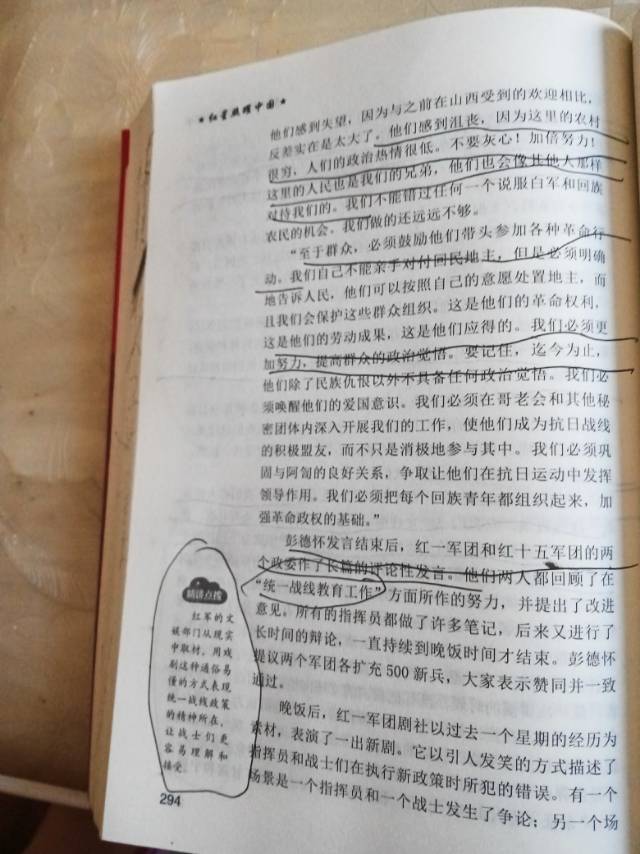 ★红星照耀中国★
他们感到失望，因为与之前在山西受到的欢迎相比，
反差实在是太大了。他们感到沮丧，因为这里的农村
很穷，人们的政治热情很低。不要灰心！加倍努力！
这里的人民也是我们的兄弟，他们也会像其他人那样
对待我们的。我们不能错过任何一个说服白军和回族
农民的机会。我们做的还远远不够。
“至于群众，必须鼓励他们带头参加各种革命行
动。我们自己不能亲手对付回民地主，但是必须明确
地告诉人民，他们可以按照自己的意愿处置地主，而
且我们会保护这些群众组织。这是他们的革命权利，
这是他们的劳动成果，这是他们应得的。我们必须更
加努力，提高群众的政治觉悟。要记住，迄今为止，
他们除了民族仇恨以外不具备任何政治觉悟。我们必
须唤醒他们的爱国意识。我们必须在哥老会和其他秘
密团体内深入开展我们的工作，使他们成为抗日战线
的积极盟友，而不只是消极地参与其中。我们必须巩
固与阿訇的良好关系，争取让他们在抗日运动中发挥
领导作用。我们必须把每个回族青年都组织起来，加
强革命政权的基础。”
彭德怀发言结束后，红一军团和红十五军团的两
个政委作了长篇的评论性发言。他们两人都回顾了在
“统一战线教育工作”方面所作的努力，并提出了改进
意见。所有的指挥员都做了许多笔记，后来又进行了
长时间的辩论，一直持续到晚饭时间才结束。彭德怀
提议两个军团各扩充500新兵，大家表示赞同并一致
通过。
晚饭后，红一军团剧社以过去一个星期的经历为
素材，表演了一出新剧。它以引人发笑的方式描述了
指挥员和战士们在执行新政策时所犯的错误。有一个
场景是一个指挥员和一个战士发生了争论；另一个场
精讲点拨
红军的文
娱部门从现实
中取材，用戏
剧这种通俗易
懂的方式表现
统一战线政策
的精神所在，
让战士们更
容易理解和
接受。
294